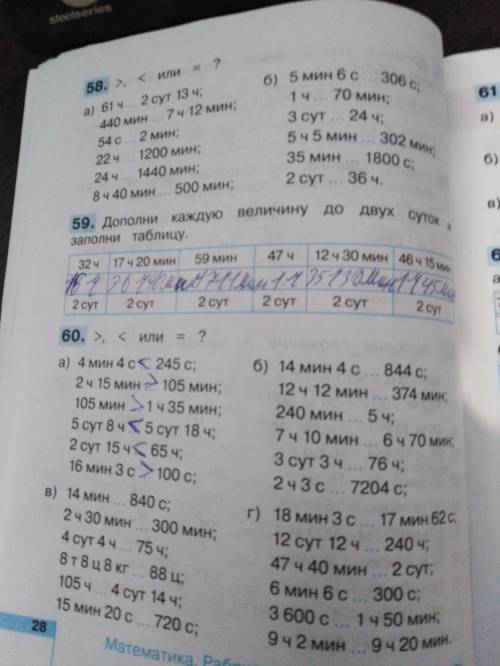 steelseries
58. >, < или = ?
а) 61 ч ... 2 сут 13 ч;
440 мин ... 7 ч 12 мин;
54 с ... 2 мин;
22 ч ... 1200 мин;
24 ч ... 1440 мин;
8 ч 40 мин ... 500 мин;
б) 5 мин 6 с ... 306 с;
1 ч ... 70 мин;
3 сут ... 24 ч;
5 ч 5 мин ... 302 мин;
35 мин ... 1800 с;
2 сут ... 36 ч.
59. Дополни каждую величину до двух суток и
заполни таблицу.
32 ч 17 ч 20 мин 59 мин 47 ч 12 ч 30 мин 46 ч 15 мин
16 ч 1 ч
2 сут 2 сут 2 сут 2 сут 2 сут 2 сут
60. >, < или = ?
а) 4 мин 4 с < 245 с;
2 ч 15 мин > 105 мин;
105 мин > 1 ч 35 мин;
5 сут 8 ч < 5 сут 18 ч;
2 сут 15 ч < 65 ч;
16 мин 3 с > 100 с;
б) 14 мин 4 с ... 844 с;
12 ч 12 мин ... 374 мин;
240 мин ... 5 ч;
7 ч 10 мин ... 6 ч 70 мин;
3 сут 3 ч ... 76 ч;
2 ч 3 с ... 7204 с;
в) 14 мин ... 840 с;
2 ч 30 мин ... 300 мин;
4 сут 4 ч ... 75 ч;
8 т 8 ц 8 кг ... 88 ц;
105 ч ... 4 сут 14 ч;
15 мин 20 с ... 720 с;
г) 18 мин 3 с ... 17 мин 62 с;
12 сут 12 ч ... 240 ч;
47 ч 40 мин ... 2 сут;
6 мин 6 с ... 300 с;
3 600 с ... 1 ч 50 мин;
9 ч 2 мин ... 9 ч 20 мин.
28
Математика.
61
а)
б)
в)